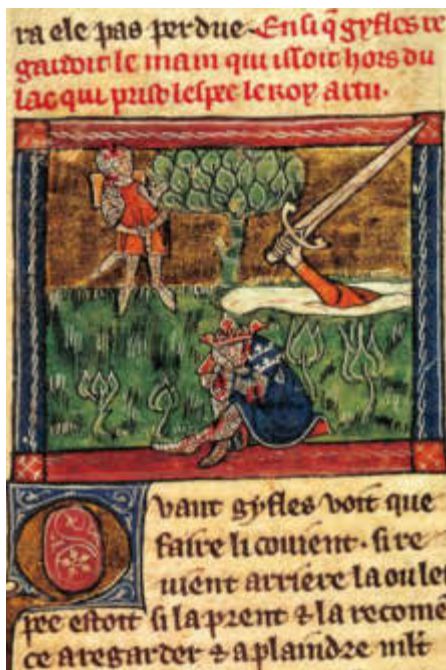 ra ele pas perdue. Ensi q̃ gyfles re
gardoit le main qui issoit hors du
lac qui prist lespee le roy artu.
Quant gyfles voit que
faire li couient. si re
uient arriere la ou les
pee estoit si la prent & la recom̃
ce a regarder & a plaindre mlt